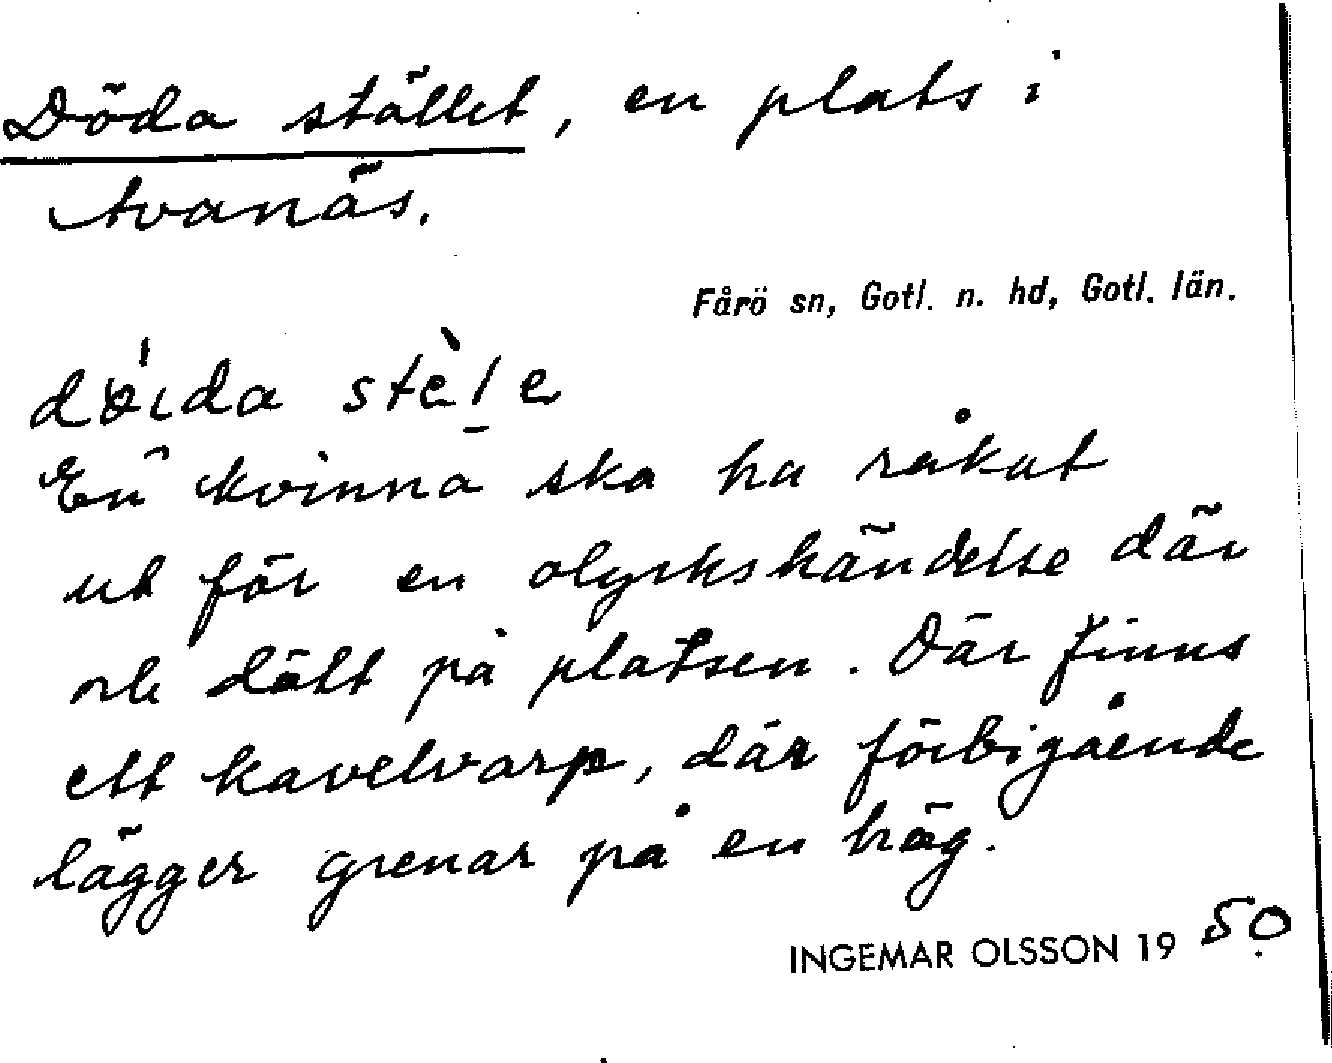 Döda stället, en plats i
Avanäs.
Fårö sn, Gotl. n. hd, Gotl. län.
dö́ida stèle
En kvinna ska ha råkat
ut för en olyckshändelse där
och dött på platsen. Där finns
ett kavelvarp, där förbigående
lägger grenar på en hög.
INGEMAR OLSSON 19 50